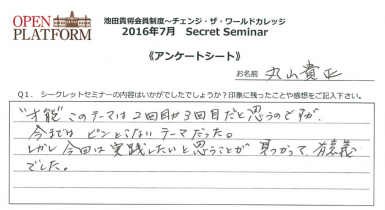 OPEN
PLATFORM
池田貴将会員制度～チェンジ・ザ・ワールドカレッジ
2016年7月 Secret Seminar
《アンケートシート》
お名前 丸山貴正
Q1. シークレットセミナーの内容はいかがでしたでしょうか?印象に残ったことや感想をご記入下さい。
"才能"このテーマは2回目か3回目だと思うのですが、
今まではピンとこないテーマだった。
しかし今回は実践したいと思うことが見つかって有意義
でした。